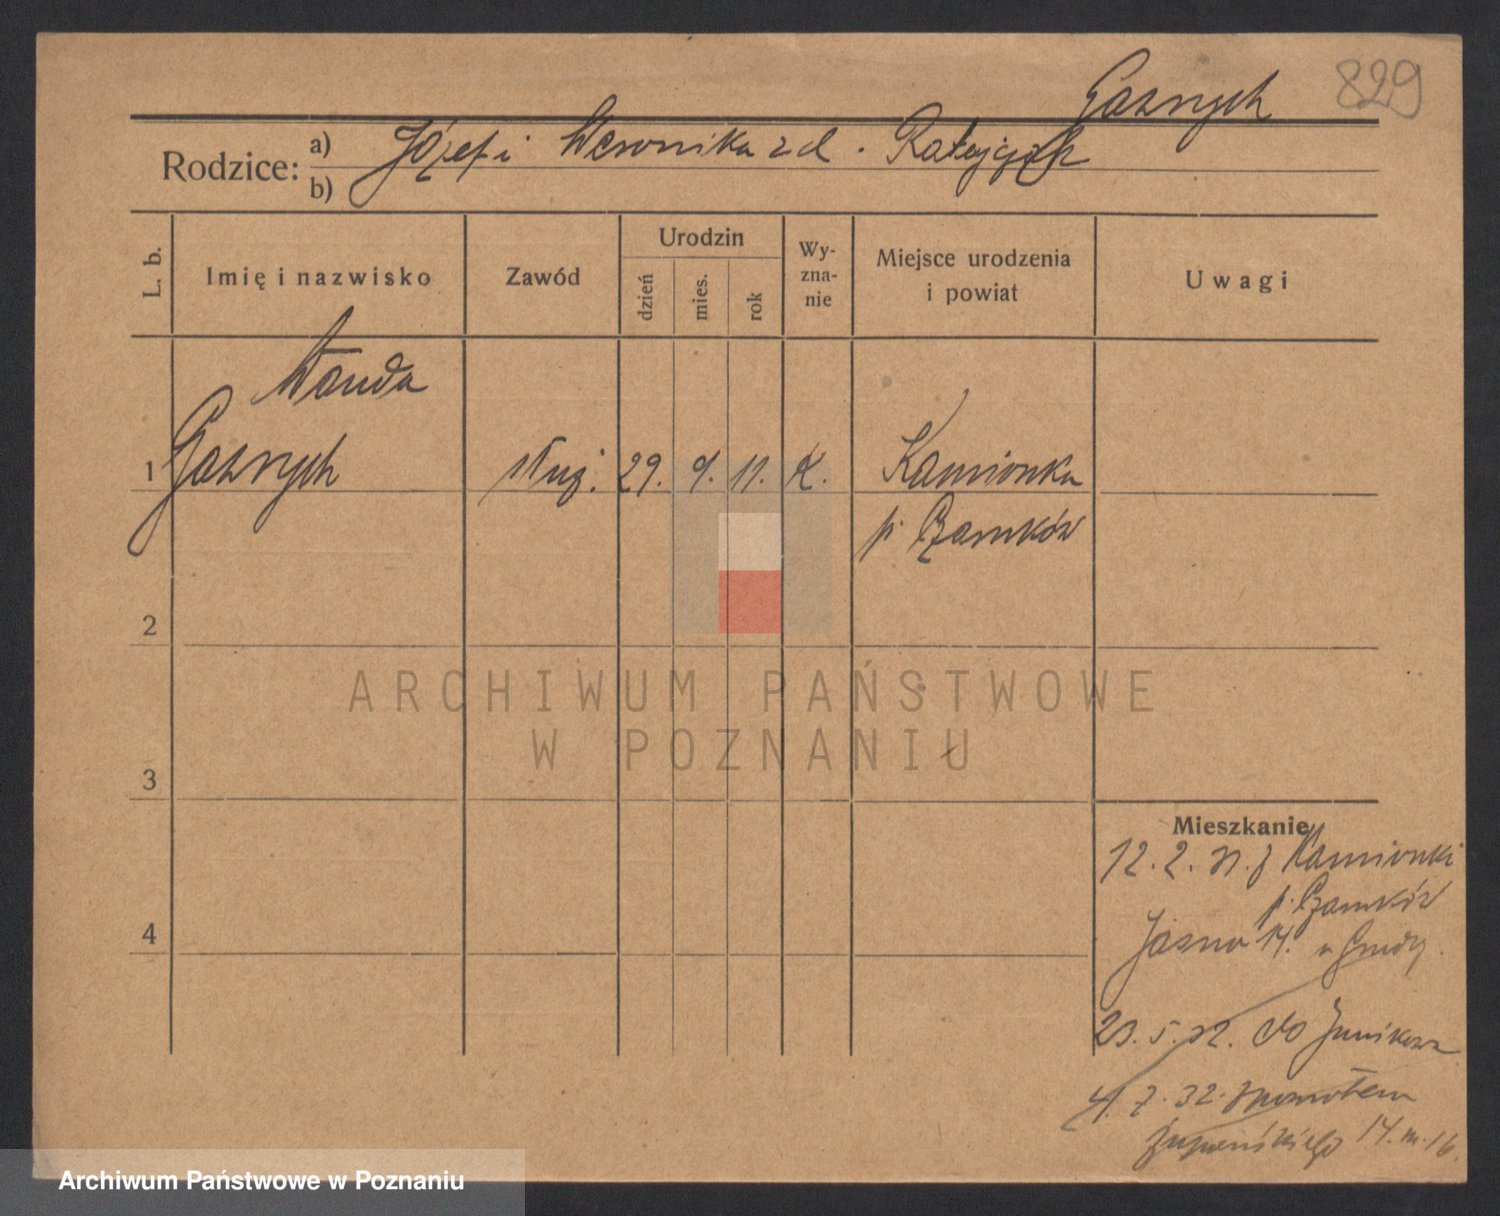 829
Gasnych
Rodzice: a) Józef i Weronika z d. Ratajczak
b)
L. b.
Imię i nazwisko
Zawód
Urodzin
dzień
mies.
rok
Wy-
zna-
nie
Miejsce urodzenia
i powiat
Uwagi
Wanda
1 Gasnych służ. 29. 9. 11. K. Kamionka
p. Czarnków
2
3
4
ARCHIWUM PAŃSTWOWE
W POZNANIU
Mieszkanie
12. 2. 31. z Kamionki
p. Czarnków
Jasna 14. u
23. 5. 32. do Junikowa
4. 7. 32. z powrotem
Żupańskiego 14. m. 16.
Archiwum Państwowe w Poznaniu